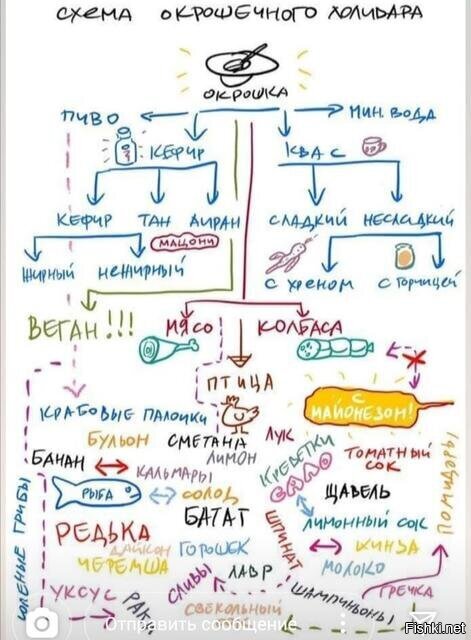 СХЕМА ОКРОШЕЧНОГО ХОЛИВАРА
ОКРОШКА
ПИВО
МИН. ВОДА
КЕФИР
КВАС
КЕФИР ТАН АЙРАН
СЛАДКИЙ НЕСЛАДКИЙ
МАЦОНИ
ЖИРНЫЙ НЕЖИРНЫЙ
С ХРЕНОМ С ГОРЧИЦЕЙ
ВЕГАН!!!
МЯСО КОЛБАСА
ПТИЦА
С МАЙОНЕЗОМ!
КРАБОВЫЕ ПАЛОЧКИ
БУЛЬОН СМЕТАНА ЛУК
БАНАН
КАЛЬМАРЫ
ЛИМОН
КРЕВЕТКИ
ТОМАТНЫЙ СОК
ПОМИДОРЫ
РЫБА
СОЛОД
БАТАТ
ЩАВЕЛЬ
ЛИМОННЫЙ СОК
СОЛЕНЫЕ ГРИБЫ
РЕДЬКА
ДАЙКОН
ГОРОШЕК
ШПИНАТ
КИНЗА
ЧЕРЕМША
СЛИВЫ
ЛАВР
МОЛОКО
УКСУС
РАКИ
СВЕКОЛЬНЫЙ
ШАМПИНЬОНЫ
ГРЕЧКА
Отправить сообщение
Fishki.net